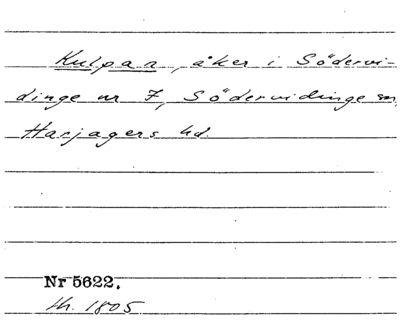 Kulpan, åker i Södervi-
dinge nr 7, Södervidinge sn,
Harjagers hd.
Nr 5622.
th. 1805